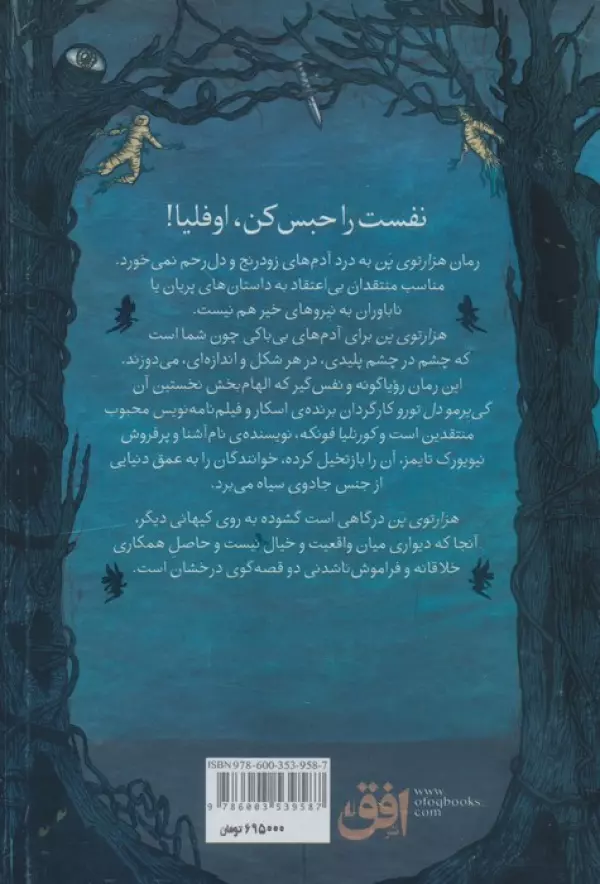 نفست را حبس کن، اوفلیا!
رمان هزارتوی پَن به درد آدم‌های زودرنج و دل‌رحم نمی‌خورد.
مناسب منتقدان بی‌اعتقاد به داستان‌های پریان یا
ناباوران به نیروهای خیر هم نیست.
هزارتوی پَن برای آدم‌های بی‌باکی چون شما است
که چشم در چشم پلیدی، در هر شکل و اندازه‌ای، می‌دوزند.
این رمان رؤیاگونه و نفس‌گیر که الهام‌بخش نخستین آن
گی‌یرمو دل تورو کارگردان برنده‌ی اسکار و فیلم‌نامه‌نویس محبوب
منتقدین است و کورنلیا فونکه، نویسنده‌ی نام‌آشنا و پرفروش
نیویورک تایمز، آن را بازتخیل کرده، خوانندگان را به عمق دنیایی
از جنس جادوی سیاه می‌برد.
هزارتوی پَن درگاهی است گشوده به روی کیهانی دیگر،
آنجا که دیواری میان واقعیت و خیال نیست و حاصلِ همکاری
خلاقانه و فراموش‌ناشدنی دو قصه‌گوی درخشان است.
ISBN 978-600-353-958-7
9 786003 539587
۶۹۵۰۰۰ تومان
نشر افق
www.
ofoqbooks.
com